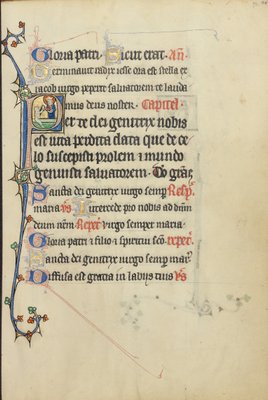 Gloria patri. Sicut erat. An
Germinavit radix iesse orta est stella ex
iacob virgo peperit salvatorem te lauda
mus deus noster. Capitel'.
Per te dei genitrix nobis
est vita perdita data que de ce
lo suscepisti prolem i mundo
genuisti salvatorem. Do gras
Sancta dei genitrix virgo semper Resp.
maria. Vs Intercede pro nobis ad dnm
deum nrm Repet' virgo semper maria.
Gloria patri i filio i spiritui sco. repet'.
Sancta dei genitrix virgo semper mar'
Diffusa est gratia in labiis tuis Vs